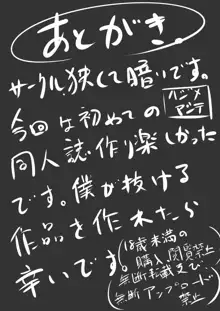 あとがき。
サークル、狭くて暗いです。
今回は初めての
ハジメマシテ
同人誌作り楽しかった
です。僕が抜ける
作品を作れたら
幸いです。
(18歳未満の
購入、閲覧禁止
無断転載及び、
無断アップロード
禁止)